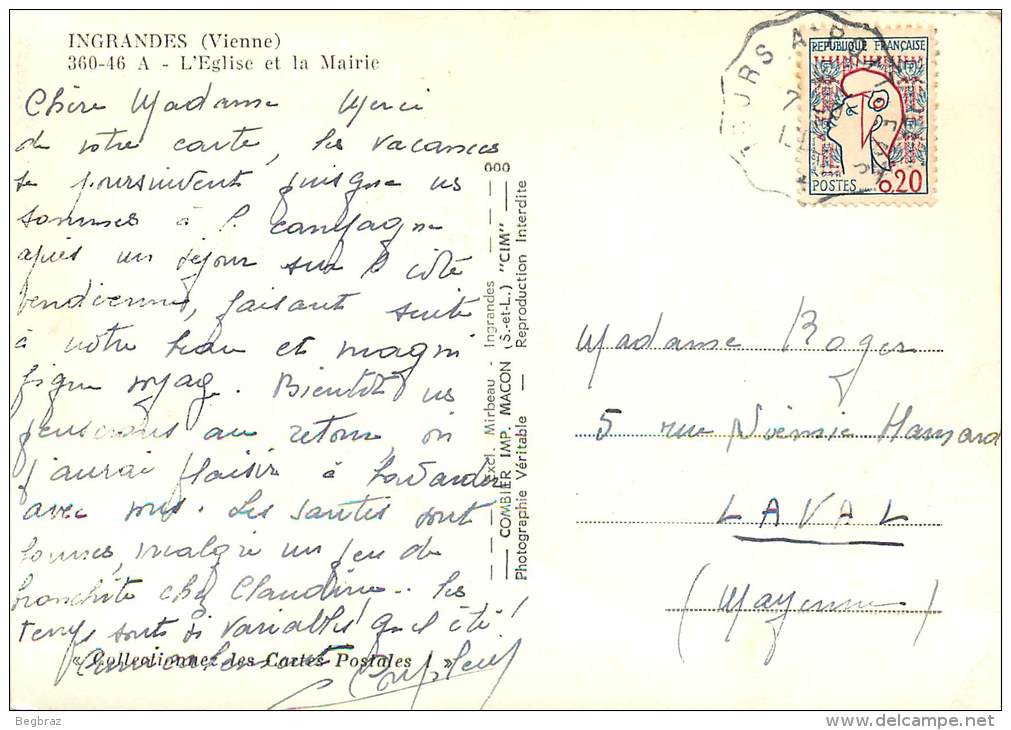 INGRANDES (Vienne)
360-46 A - L'Eglise et la Mairie
Chère Madame Merci
de votre carte, les vacances
se poursuivent puisque ns
sommes à l. campagne
après un séjour sur l côté
vendéenne, faisant suite
à notre beau et magni
fique voyag. Bientôt ns
penserons au retour, où
j'aurai plaisir à bavarder
avec vous. Les santés sont
bonnes, malgré un peu de
bronchite chez Claudine.. les
temps sont si variables! quel été!
« Collectionnez les Cartes Postales ! »
000
Excl. Mirbeau - Ingrandes
COMBIER IMP. MACON (S.-et-L.) "CIM"
Photographie Véritable — Reproduction Interdite
TOURS A POITIERS
REPUBLIQUE FRANÇAISE
POSTES 0,20
Madame Roger
5 rue Noémie Hamard
LAVAL
(Mayenne)
Begbraz
www.delcampe.net